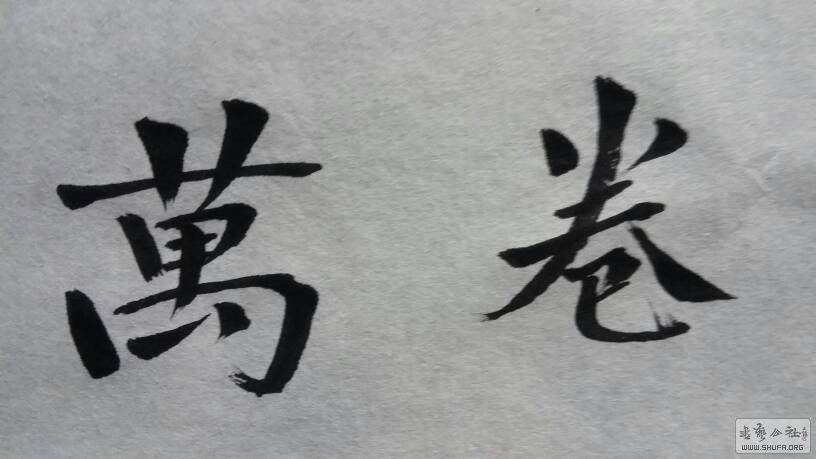 萬卷
書藝公社
WWW.SHUFA.ORG